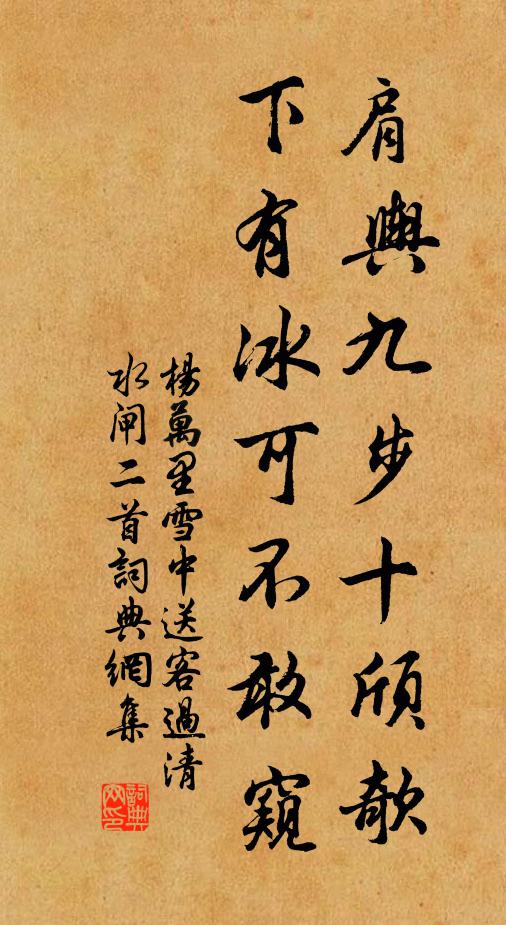 肩輿九步十傾欹
下有冰可不敢窺
楊萬里雪中送客過清
水閘二首詞典網集
詞典网印